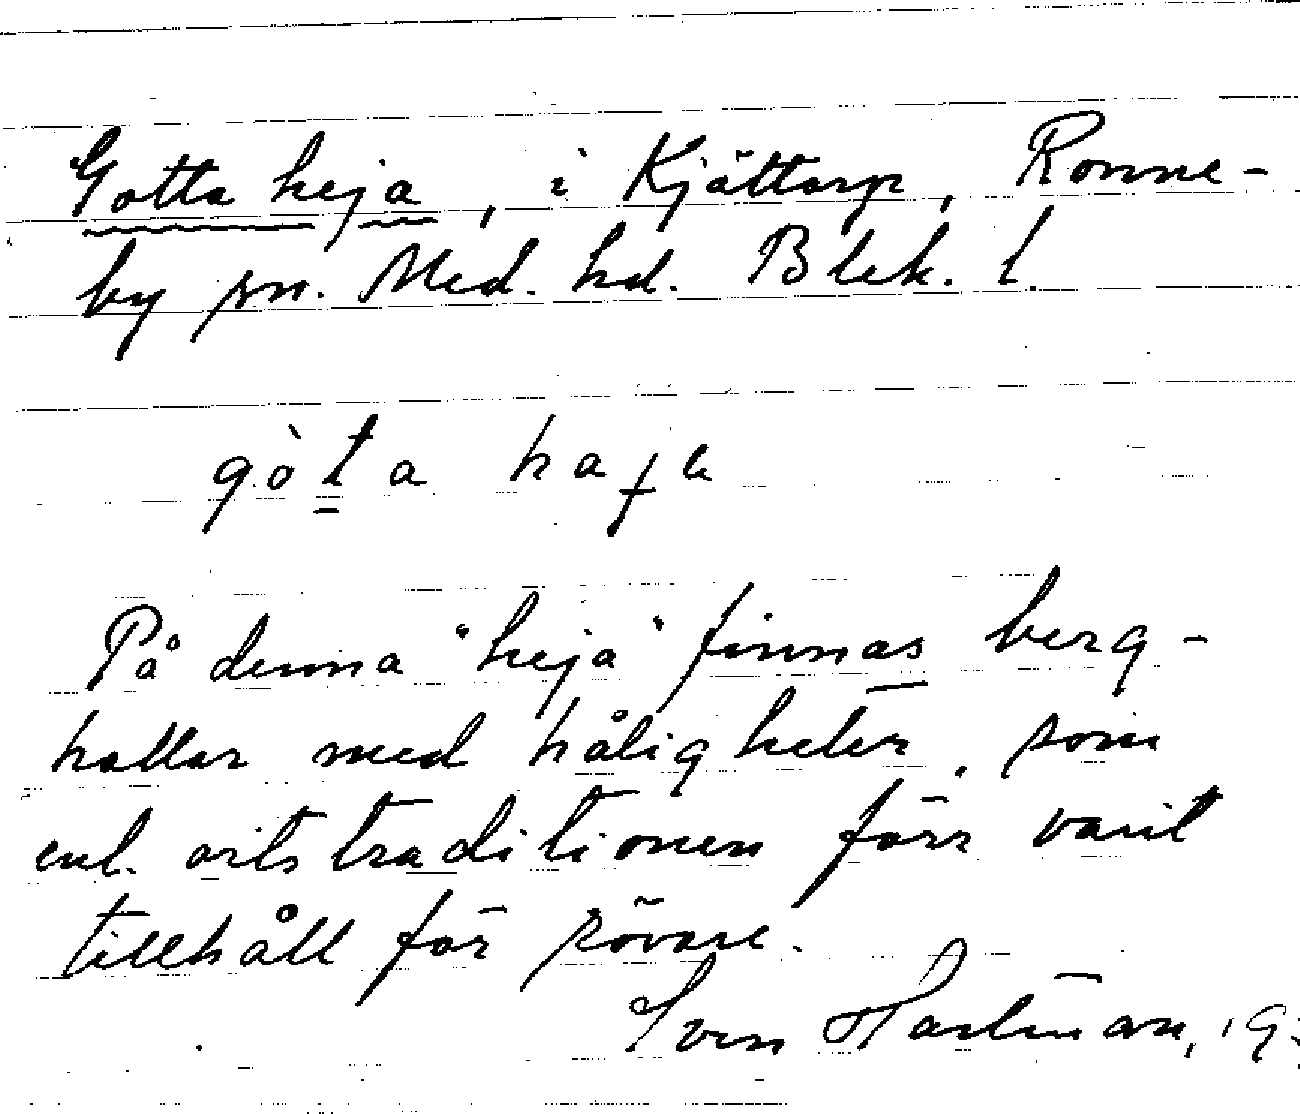 Gotta heja, i Kjättorp, Ronne-
by sn. Med. hd. Blek. l.
gòta haja
På denna "heja" finnas berg-
hallar med håligheter, som
enl. ortstraditionen förr varit
tillhåll för rövare.
Sven Hartman, 19